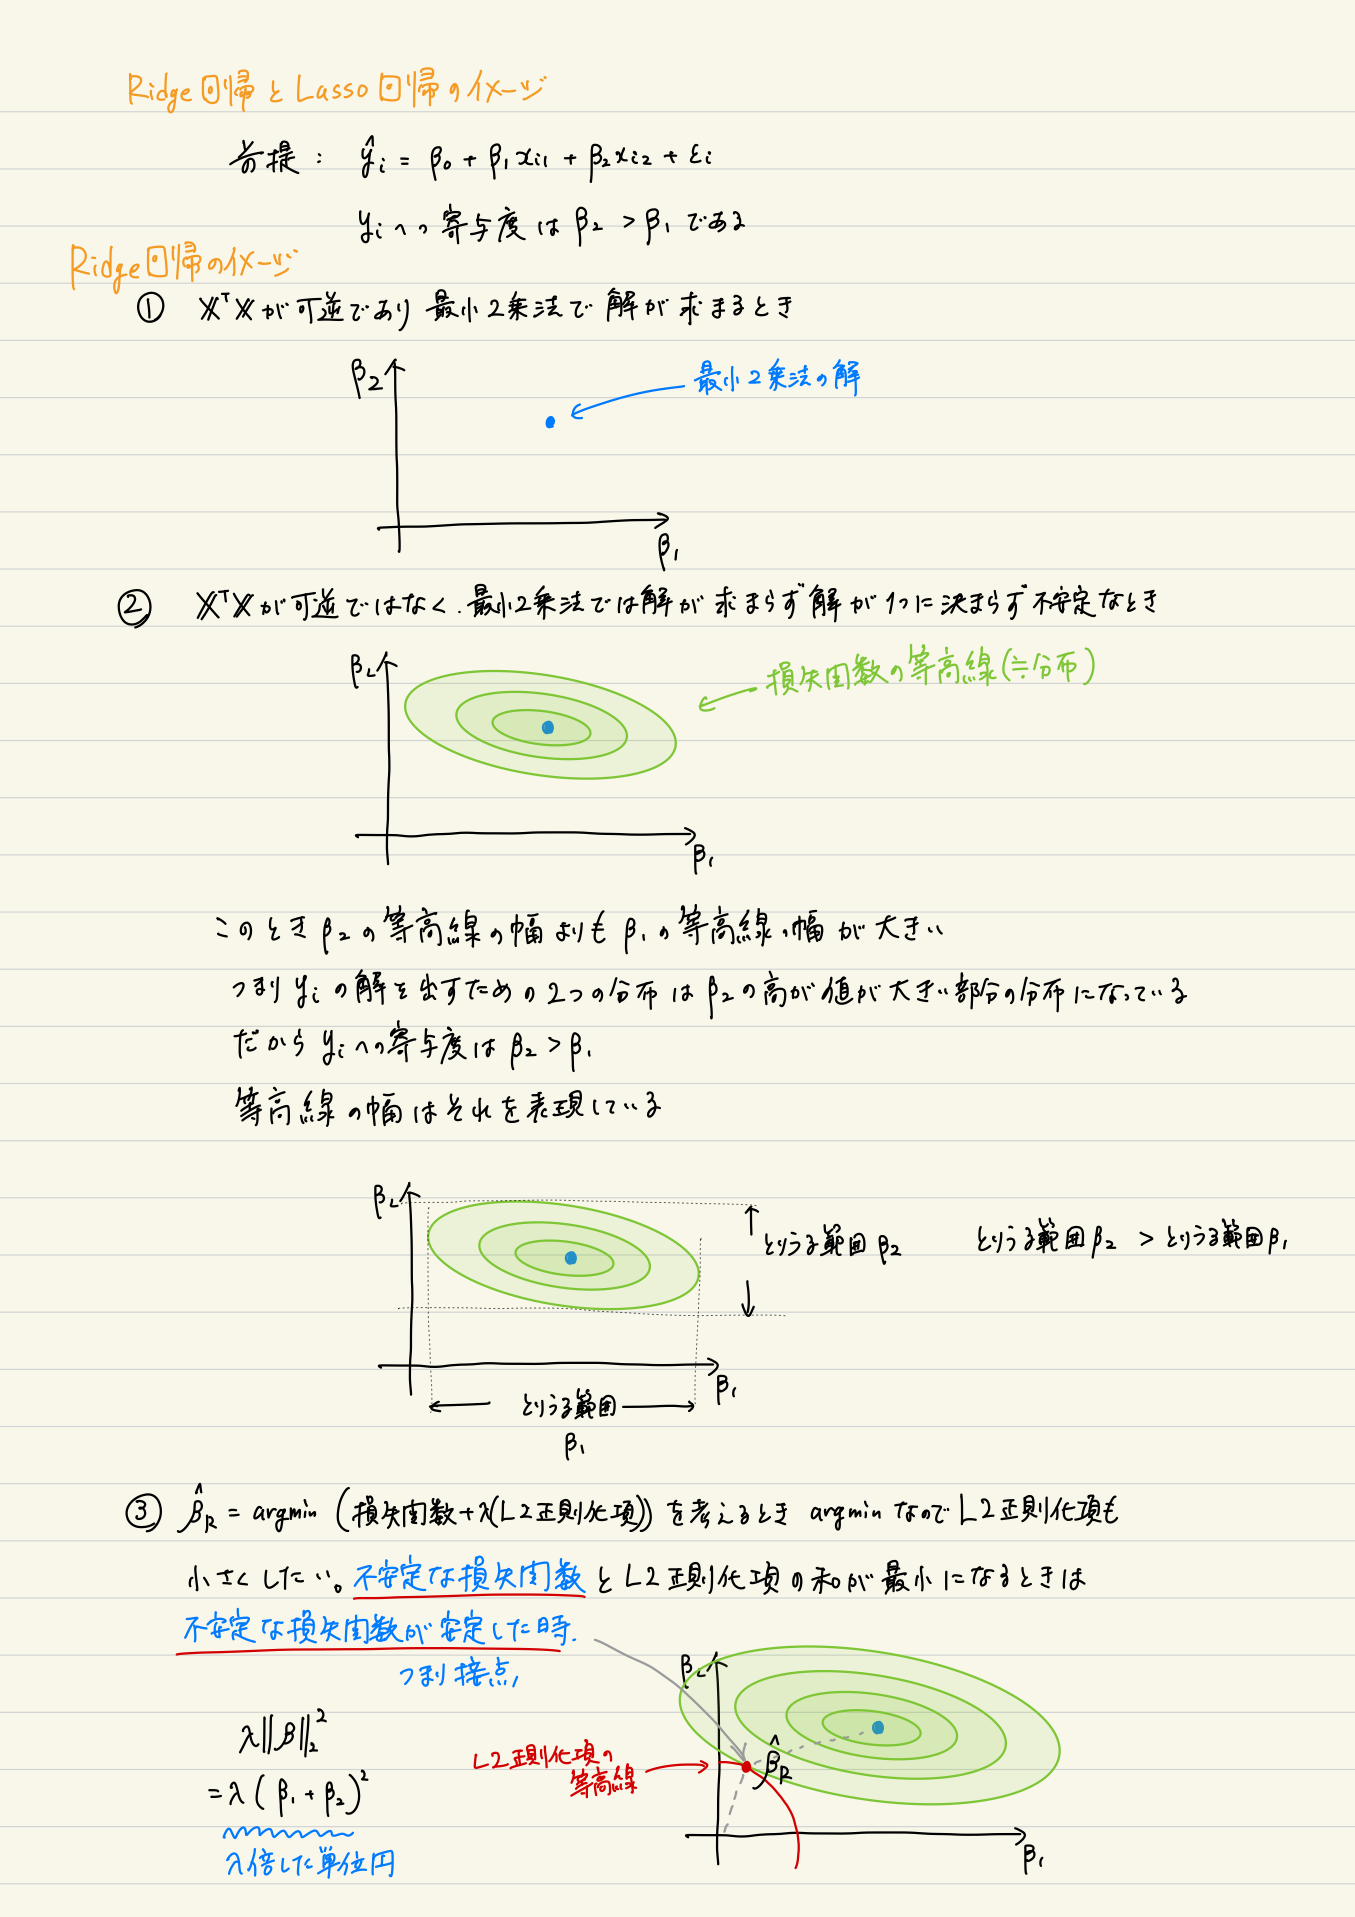 Ridge回帰とLasso回帰のイメージ
前提： ŷi = β0 + β1xi1 + β2xi2 + εi
yiへの寄与度は β2 > β1 である
Ridge回帰のイメージ
① XᵀXが可逆であり 最小2乗法で解が求まるとき
β2
最小2乗法の解
β1
② XᵀXが可逆ではなく、最小2乗法では解が求まらず解が1つに決まらず不安定なとき
β2
損失関数の等高線(≒分布)
β1
このとき β2の等高線の幅よりも β1の等高線の幅が大きい
つまり yiの解を出すための2つの分布は β2の高が値が大きい部分の分布になっている
だから yiへの寄与度は β2 > β1
等高線の幅はそれを表現している
β2
とりうる範囲 β2
とりうる範囲β2 > とりうる範囲β1
β1
とりうる範囲
β1
③ β̂R = argmin (損失関数+λ(L2正則化項)) を考えるとき argminなのでL2正則化項も
小さくしたい。不安定な損失関数とL2正則化項の和が最小になるときは
不安定な損失関数が安定した時.
つまり接点,
β2
λ||β||₂²
L2正則化項の
等高線
β̂R
= λ(β1+β2)²
λ倍した単位円
β1